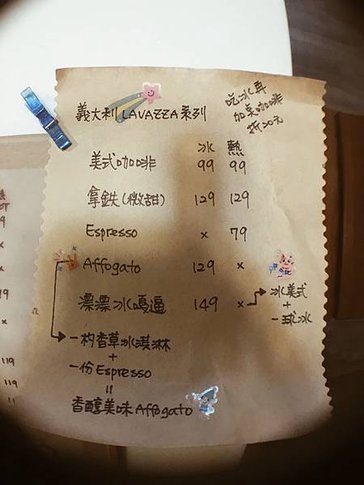 義大利 LAVAZZA 系列
吃冰再
加点咖啡
折20元
冰 熱
美式咖啡 99 99
拿鉄(微甜) 129 129
Espresso x 79
Affogato 129 x
漂漂冰嘎逼 149 x
冰美式
+
一球冰
一杓香草冰淇淋
+
一份 Espresso
=
香醇美味 Affogato